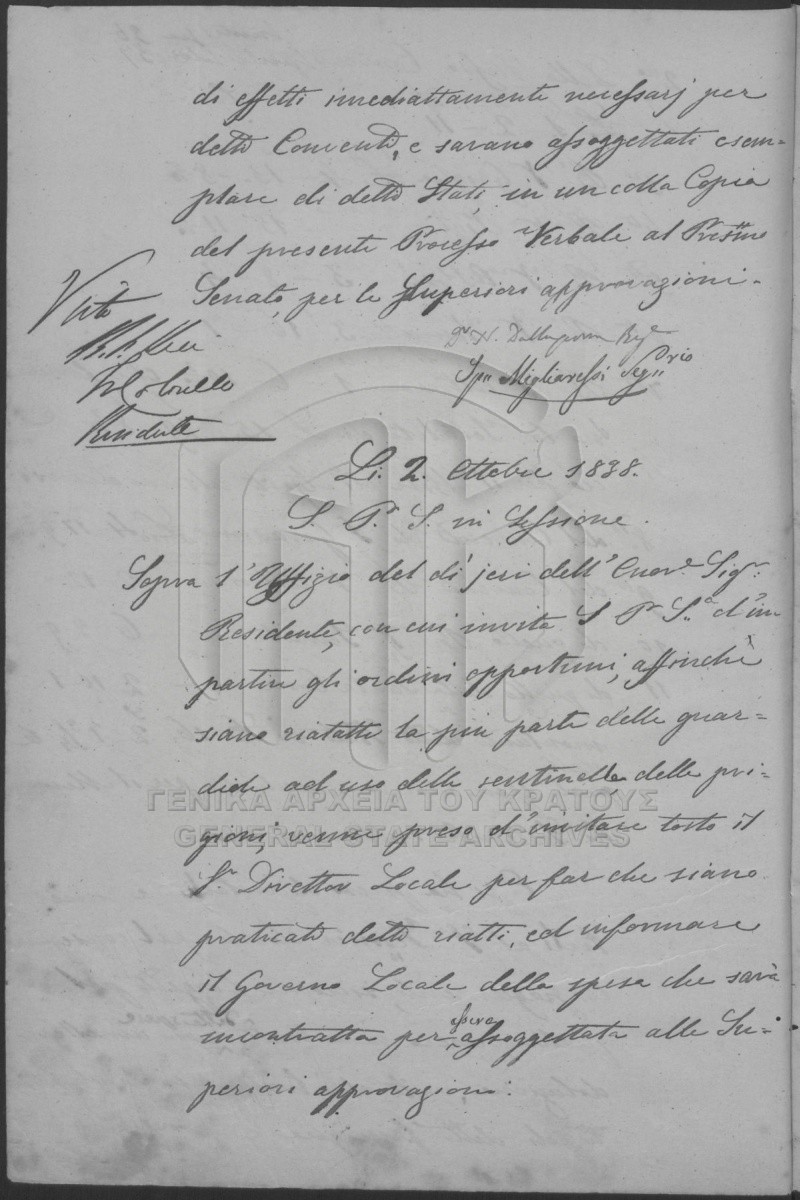 di effetti imediattamente necessarj per
detti Conventi, e sarano assoggettati esem-
plare di detti Stati, in un colla Copia
del presente Processo Verbale al Presmo
Senato, per le Superiori approvazioni.
Visto
Residente
Sp:" Migliaressi Seg:"rio
Li. 2. Ottobre 1838.
S. P. S. in Sessione.
Sopra l'Uffizio del di' jeri dell' Onor.e Sig.r
Residente, con cui invita S P S.a d'im
partire gli ordini opportuni, affinchè
siano riatatte la piu parte delle guar=
diole ad uso delle sentinelle delle pri=
gioni, venne preso d'invitare tosto il
S.r Direttor Locale per far che siano
praticati detti riatti, ed informare
il Governo Locale della spesa che sarà
incontratta per essere assoggettata alle Su=
periori approvazioni.
ΓΕΝΙΚΑ ΑΡΧΕΙΑ ΤΟΥ ΚΡΑΤΟΥΣ
GENERAL STATE ARCHIVES